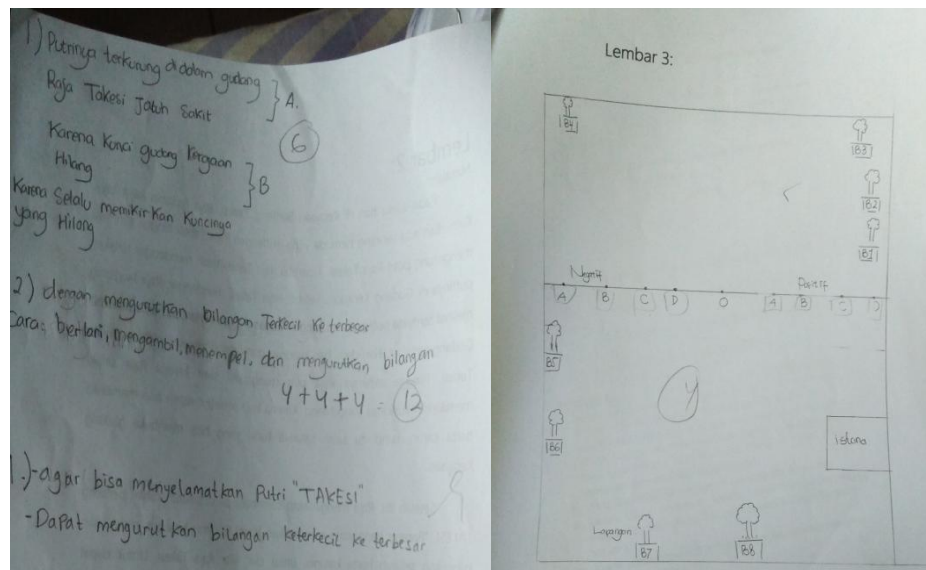 1) Putrinya terkurung didalam gudang
Raja Takesi Jatuh Sakit
} A.
6
Karena Kunci gudang
Hilang
} B
Karena Selalu memikirkan Kuncinya
yang Hilang
2) dengan mengurutkan bilangan Terkecil Ke terbesar
Cara: berlari, mengambil, menempel, dan mengurutkan bilangan
4+4+4 = 12
1.) -agar bisa menyelamatkan Putri "TAKESI"
-Dapat mengurutkan bilangan keterkecil ke terbesar
Lembar 3:
B4
B3
B2
B1
Negatif
Positif
A B C D O A B C D
B5
4
B6
istana
Lapangan
B7
B8